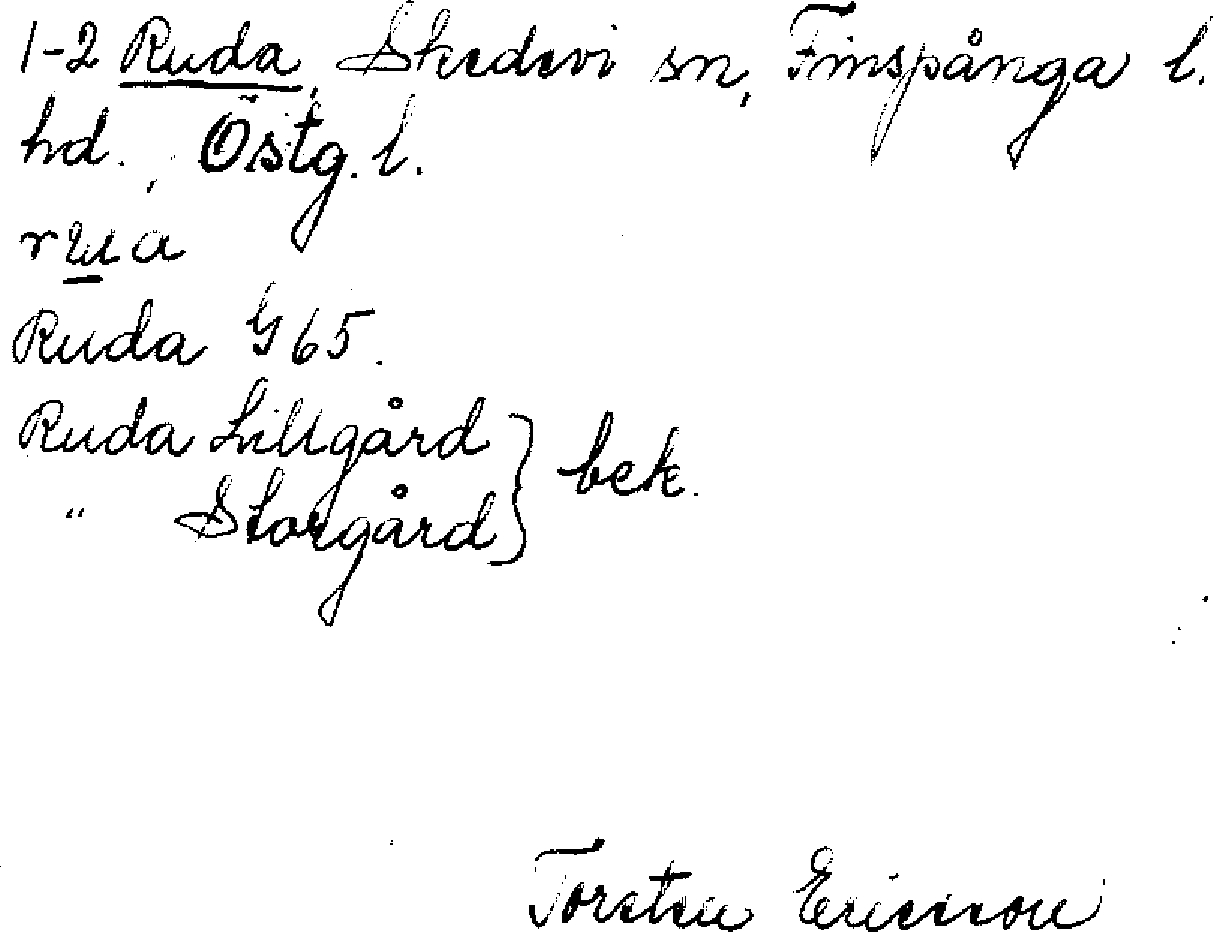 1-2 Ruda, Skedevi sn, Finspånga l.
hd., Östg. l.
rua
Ruda G 65.
Ruda Lillgård } bek.
" Storgård
Torsten Ericsson